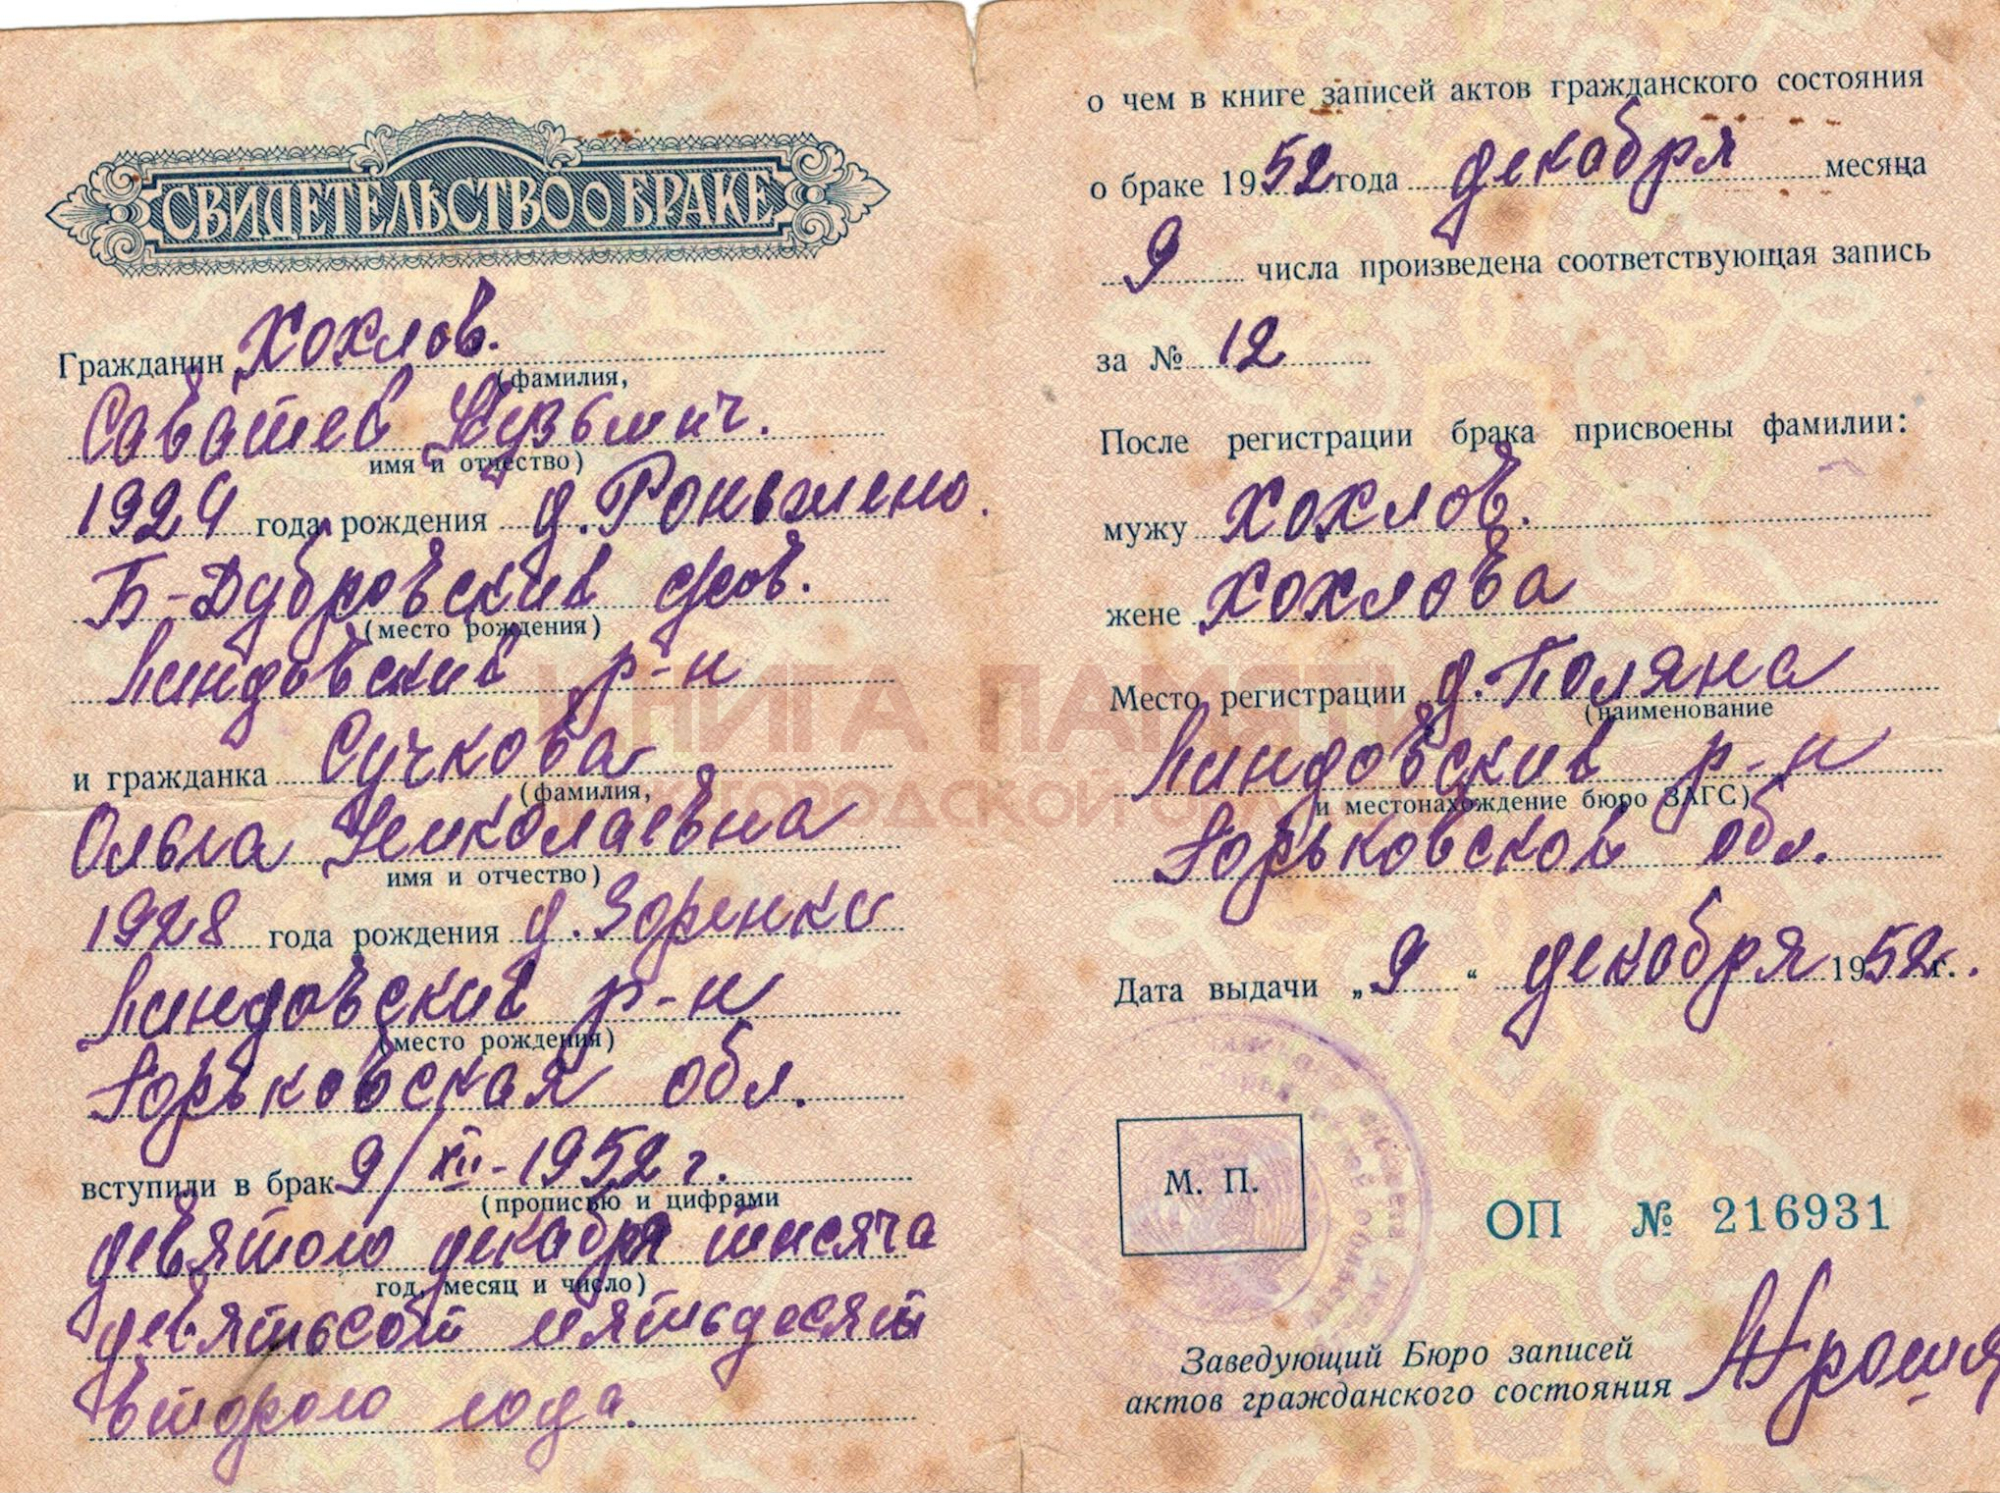 СВИДЕТЕЛЬСТВО О БРАКЕ
Гражданин Хохлов.
(фамилия,
Саватей Кузьмич.
имя и отчество)
1924 года рождения д.
Б-Дубровский с/сов.
(место рождения)
Линдовский р-н
и гражданка Сучкова
(фамилия,
Ольга Николаевна
имя и отчество)
1928 года рождения д. Зоренка
Линдовский р-н
(место рождения)
Горьковская обл.
вступили в брак 9/XII-1952 г.
(прописью и цифрами
девятого декабря тысяча
год, месяц и число)
девятьсот пятьдесят
второго года.
о чем в книге записей актов гражданского состояния
о браке 1952 года декабря месяца
9 числа произведена соответствующая запись
за № 12
После регистрации брака присвоены фамилии:
мужу Хохлов.
жене Хохлова
Место регистрации д. Поляна
(наименование
Линдовский р-н
и местонахождение бюро ЗАГС)
Горьковской обл.
Дата выдачи „9“ декабря 1952 г.
М. П.
ОП № 216931
Заведующий Бюро записей
актов гражданского состояния
КНИГА ПАМЯТИ
НИЖЕГОРОДСКОЙ ОБЛАСТИ